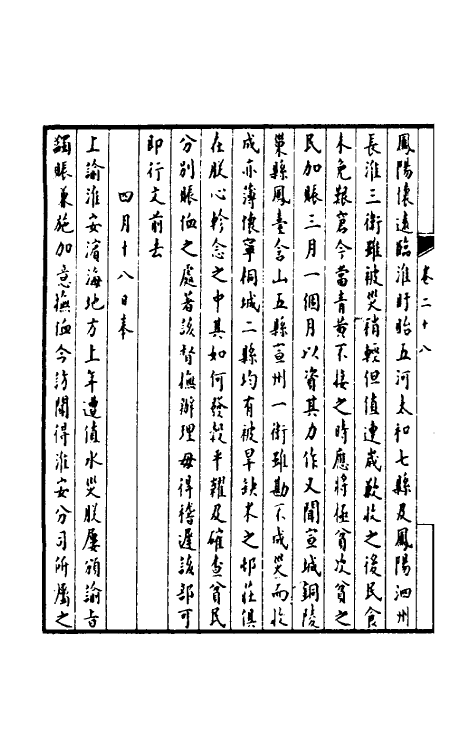 鳳陽懷遠臨淮盱眙五河太和七縣及鳳陽泗州
長淮三衛雖被災稍輕但值連歲歉收之後民食
未免艱窘今當青黃不接之時應將極貧次貧之
民加賑三月一個月以資其力作又聞宣城銅陵
巢縣鳳臺含山五縣宣州一衛雖勘不成災而收
成亦薄懷寧桐城二縣均有被旱缺米之村莊俱
在朕心軫念之中其如何發穀平糶及確查貧民
分別賑恤之處著該督撫辦理毋得稽遲該部可
即行文前去
四月十八日奉
上諭淮安濱海地方上年遭值水災朕屢頒諭旨
蠲賑兼施加意撫恤今訪聞得淮安分司所屬之
卷二十八